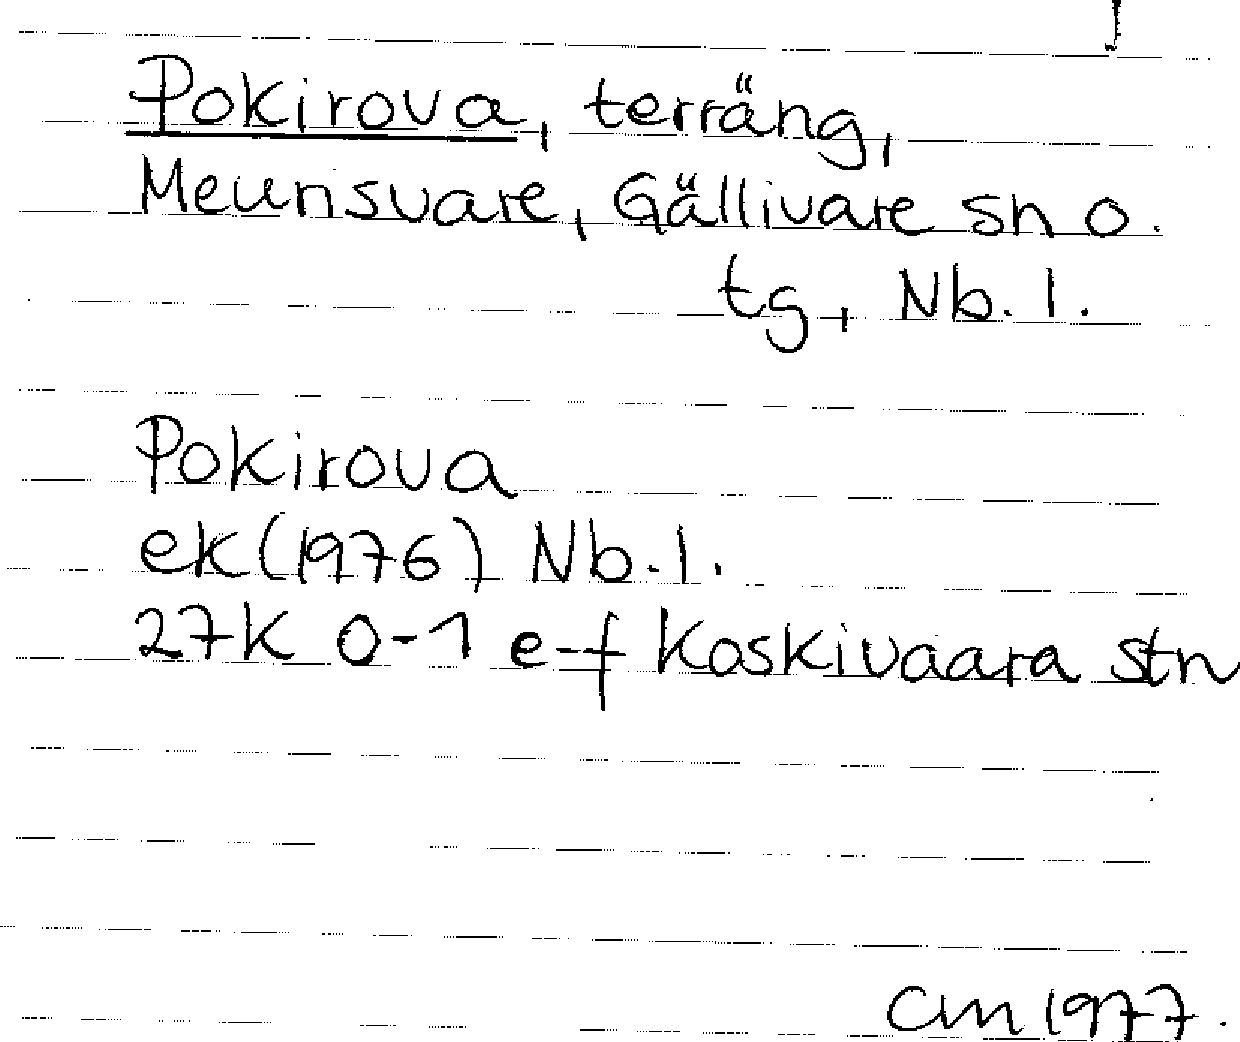 Pokirova, terräng,
Meunsvare, Gällivare sn o.
tg, Nb. l.
Pokirova
ek (1976) Nb. l.
27K 0-1 e-f Koskivaara stn
CM 1977.